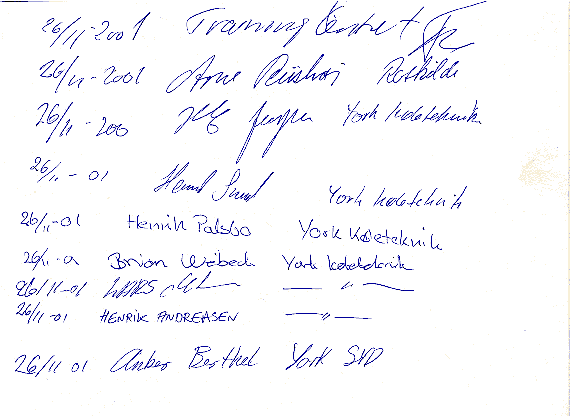 26/11-2001 Training Centret
26/11-2001 Arne Roskilde
26/11-200 York Køleteknik
26/11-01 York Køleteknik
26/11-01 Henrik Palsbo York Køleteknik
26/11-01 Brian Wibeck York Køleteknik
26/11-01 LARS — " —
26/11-01 HENRIK ANDREASEN — " —
26/11 01 Anker Berthel York SVD